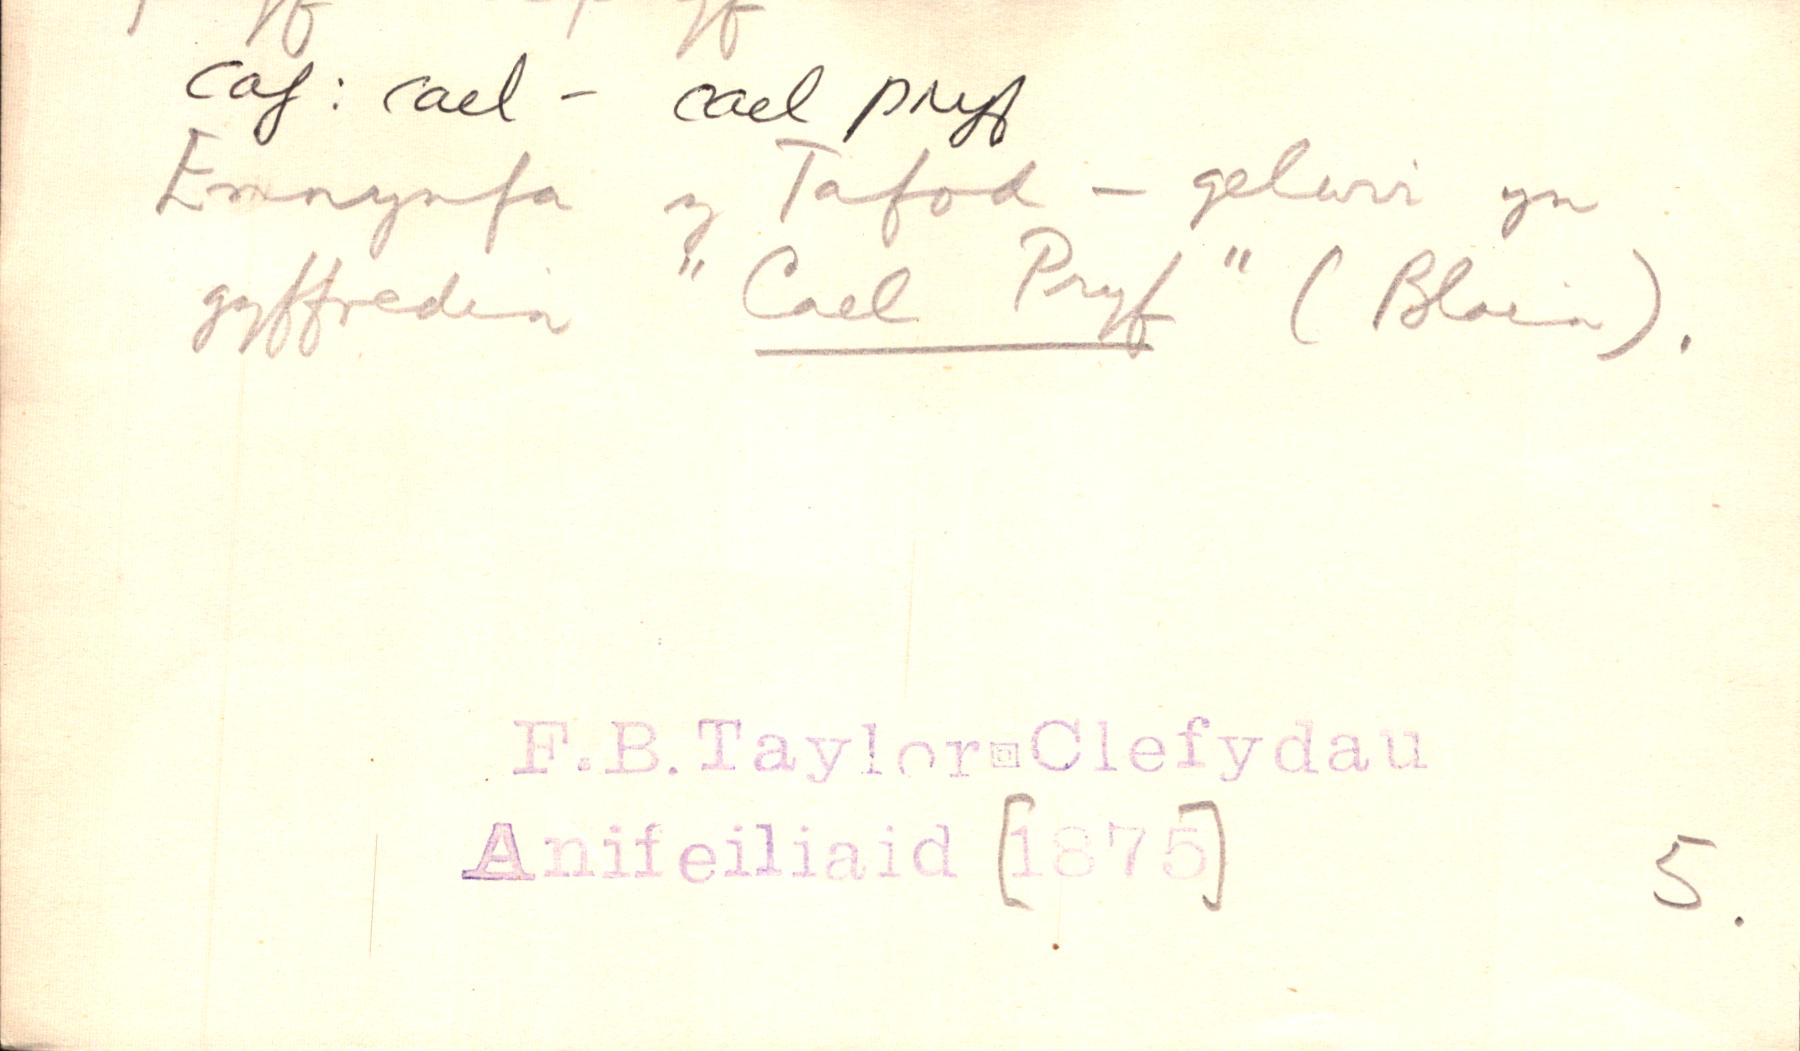 caf: cael - cael pryf
Ennynfa y Tafod - gelwir yn
gyffredin "Cael Pryf" (Blain).
F.B.Taylor-Clefydau
Anifeiliaid [1875]
5.